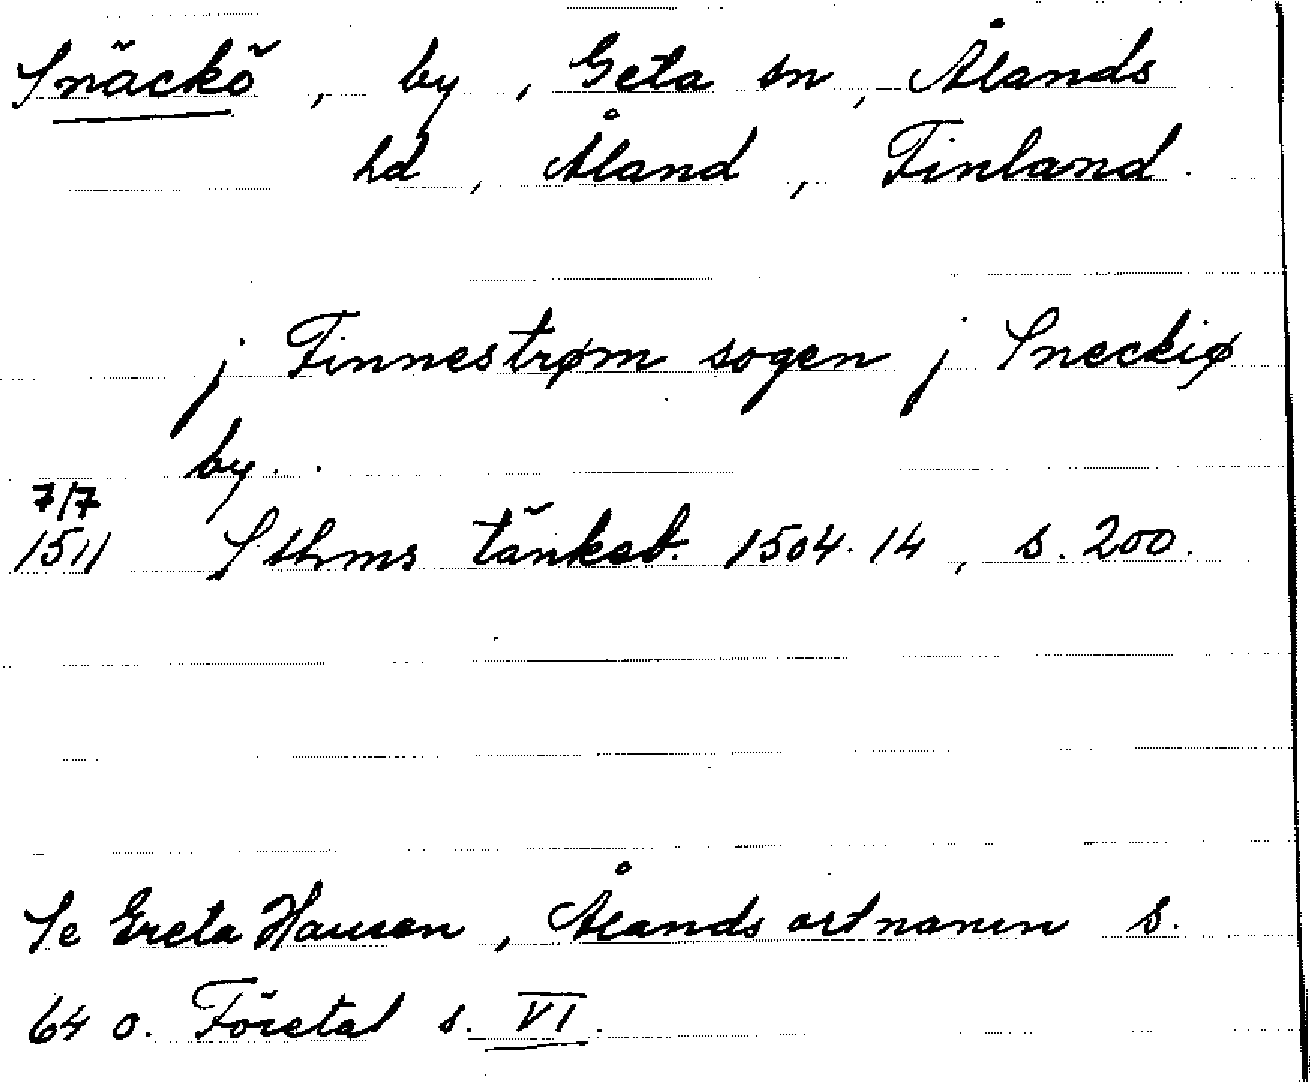 Snäckö, by, Geta sn, Ålands
hd, Åland, Finland.
j Finnestrøm sogen j Sneckiø
by..
7/7
1511 Sthms tänkeb. 1504-14, s. 200.
Se Greta Hausen, Ålands ortnamn s.
64 o. Företal s. VI.